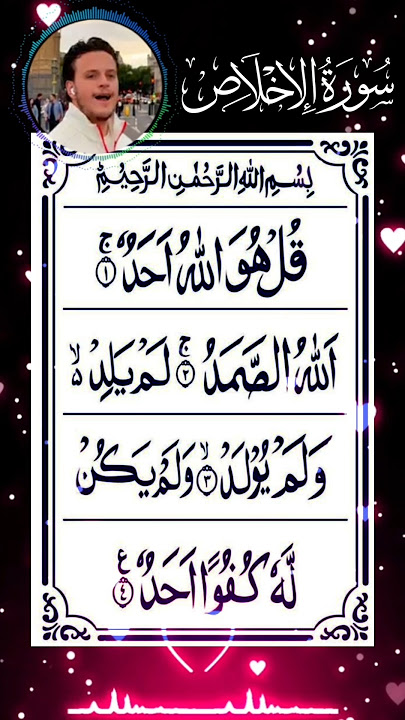 سُورَةُ الإِخْلَاصِ
بِسْمِ اللهِ الرَّحْمٰنِ الرَّحِيْمِ
قُلْ هُوَ اللهُ اَحَدٌ ۚ ١
اَللهُ الصَّمَدُ ۚ ٢ لَمْ يَلِدْ ۙ ٥
وَلَمْ يُوْلَدْ ۙ ٣ وَلَمْ يَكُنْ
لَّهٗ كُفُوًا اَحَدٌ ع ٤